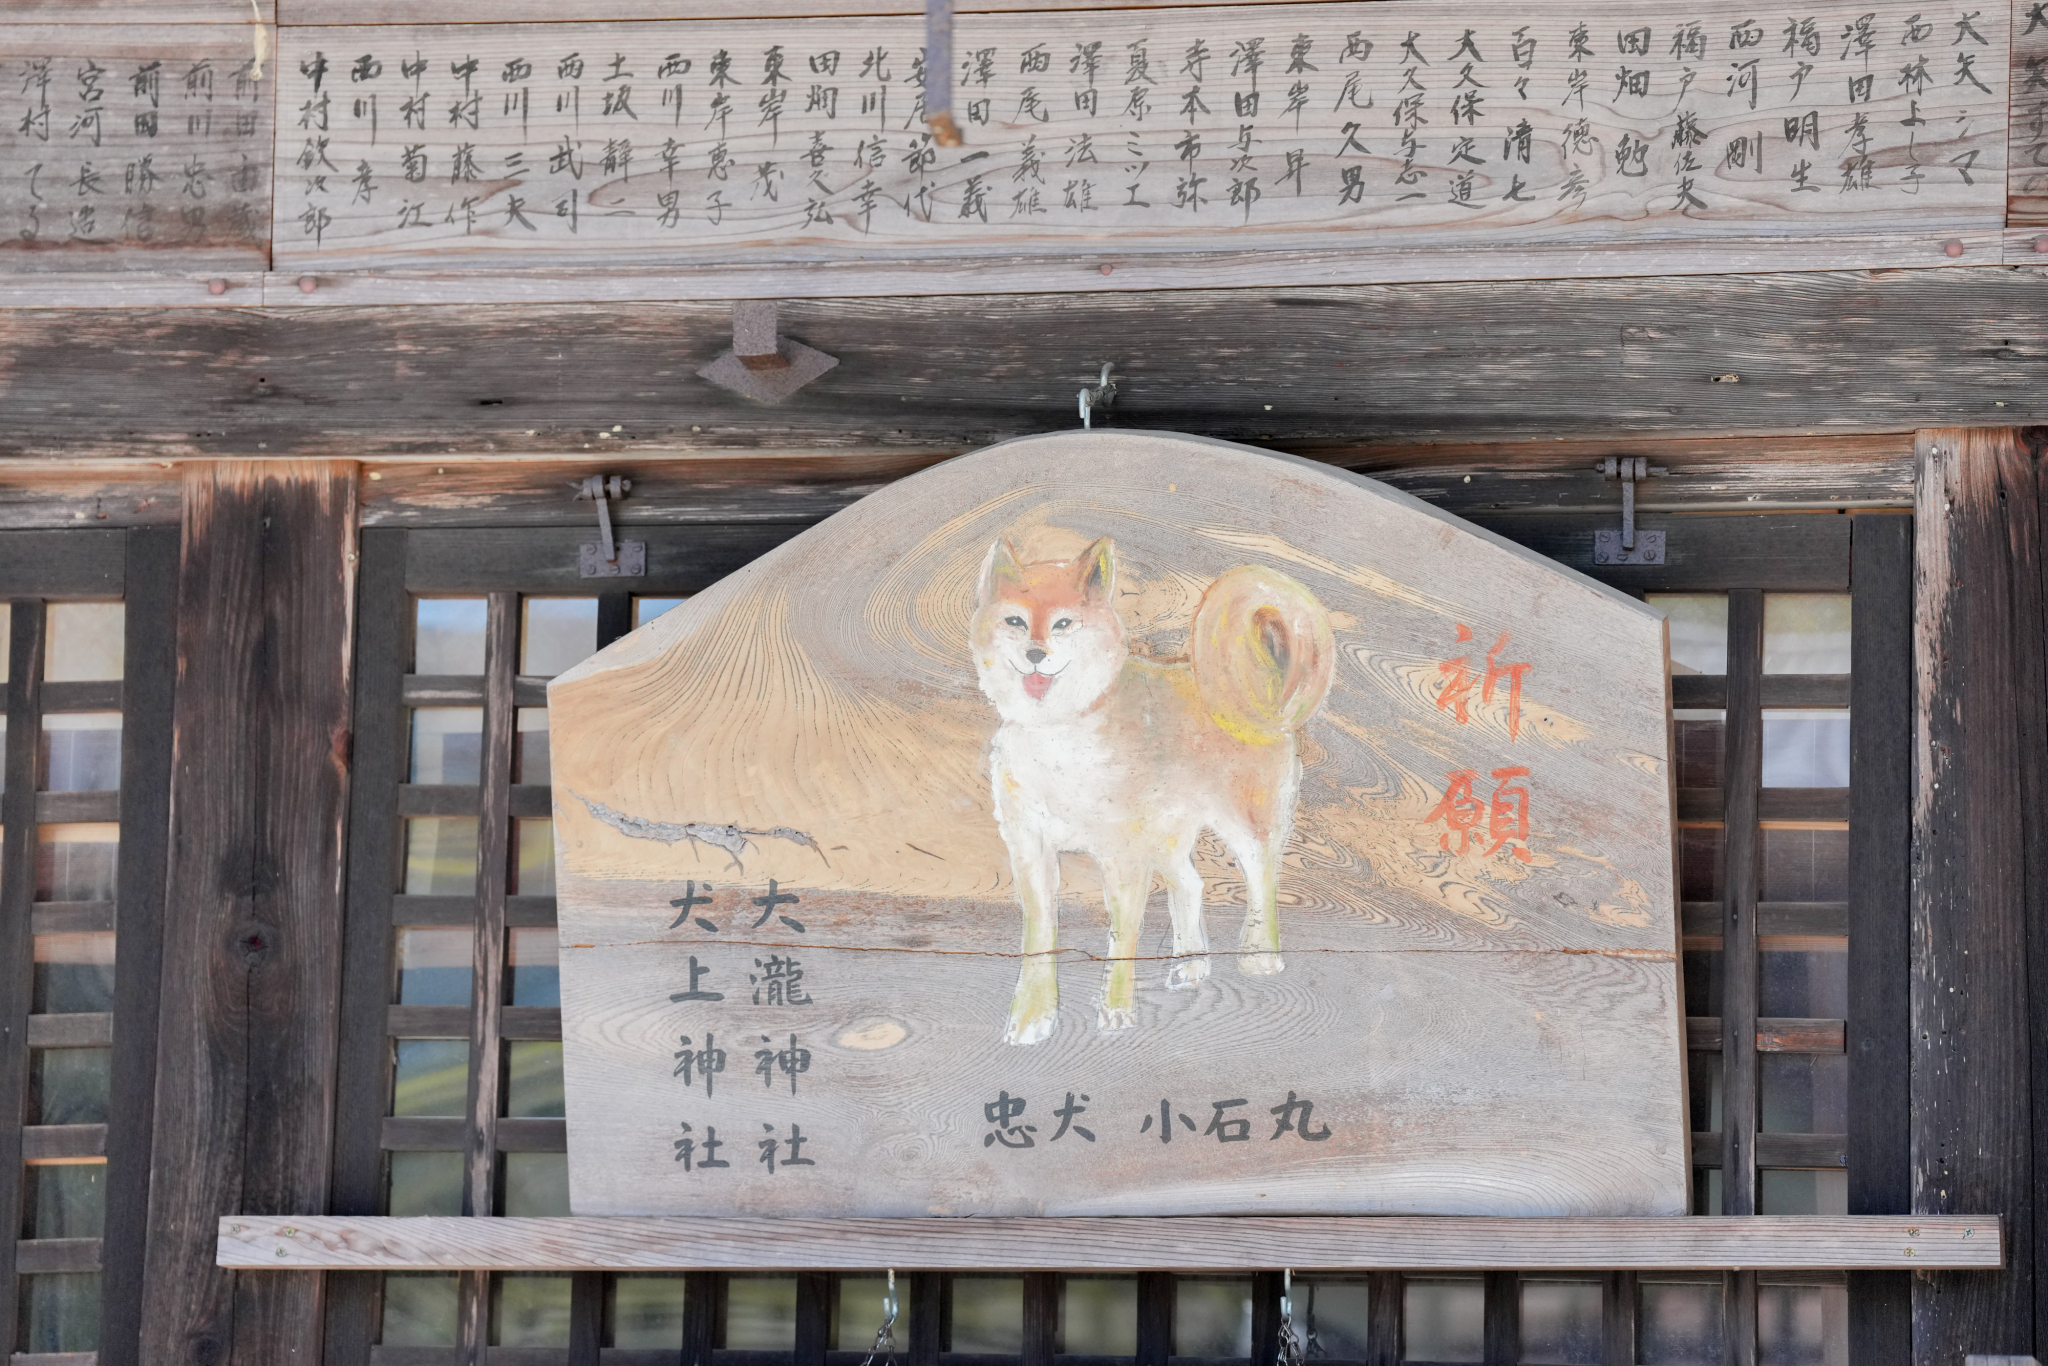 犬矢シマ
西林上し子
澤田孝雄
福戸明生
西河剛
福戸藤佐夫
田畑勉
東岸徳彦
百々清七
大久保定道
大久保与志一
西尾久男
東岸昇
澤田与次郎
寺本市弥
夏原ミツエ
澤田法雄
西尾義雄
澤田一義
安居節代
北川信幸
田烱喜久弘
東岸茂
東岸恵子
西川幸男
土坂静二
西川武司
西川三夫
中村藤作
中村菊江
西川孝
中村欽次郎
前田由蔵
前川忠男
前田勝信
宮河長造
澤村てる
祈願
忠犬 小石丸
大瀧神社
犬上神社